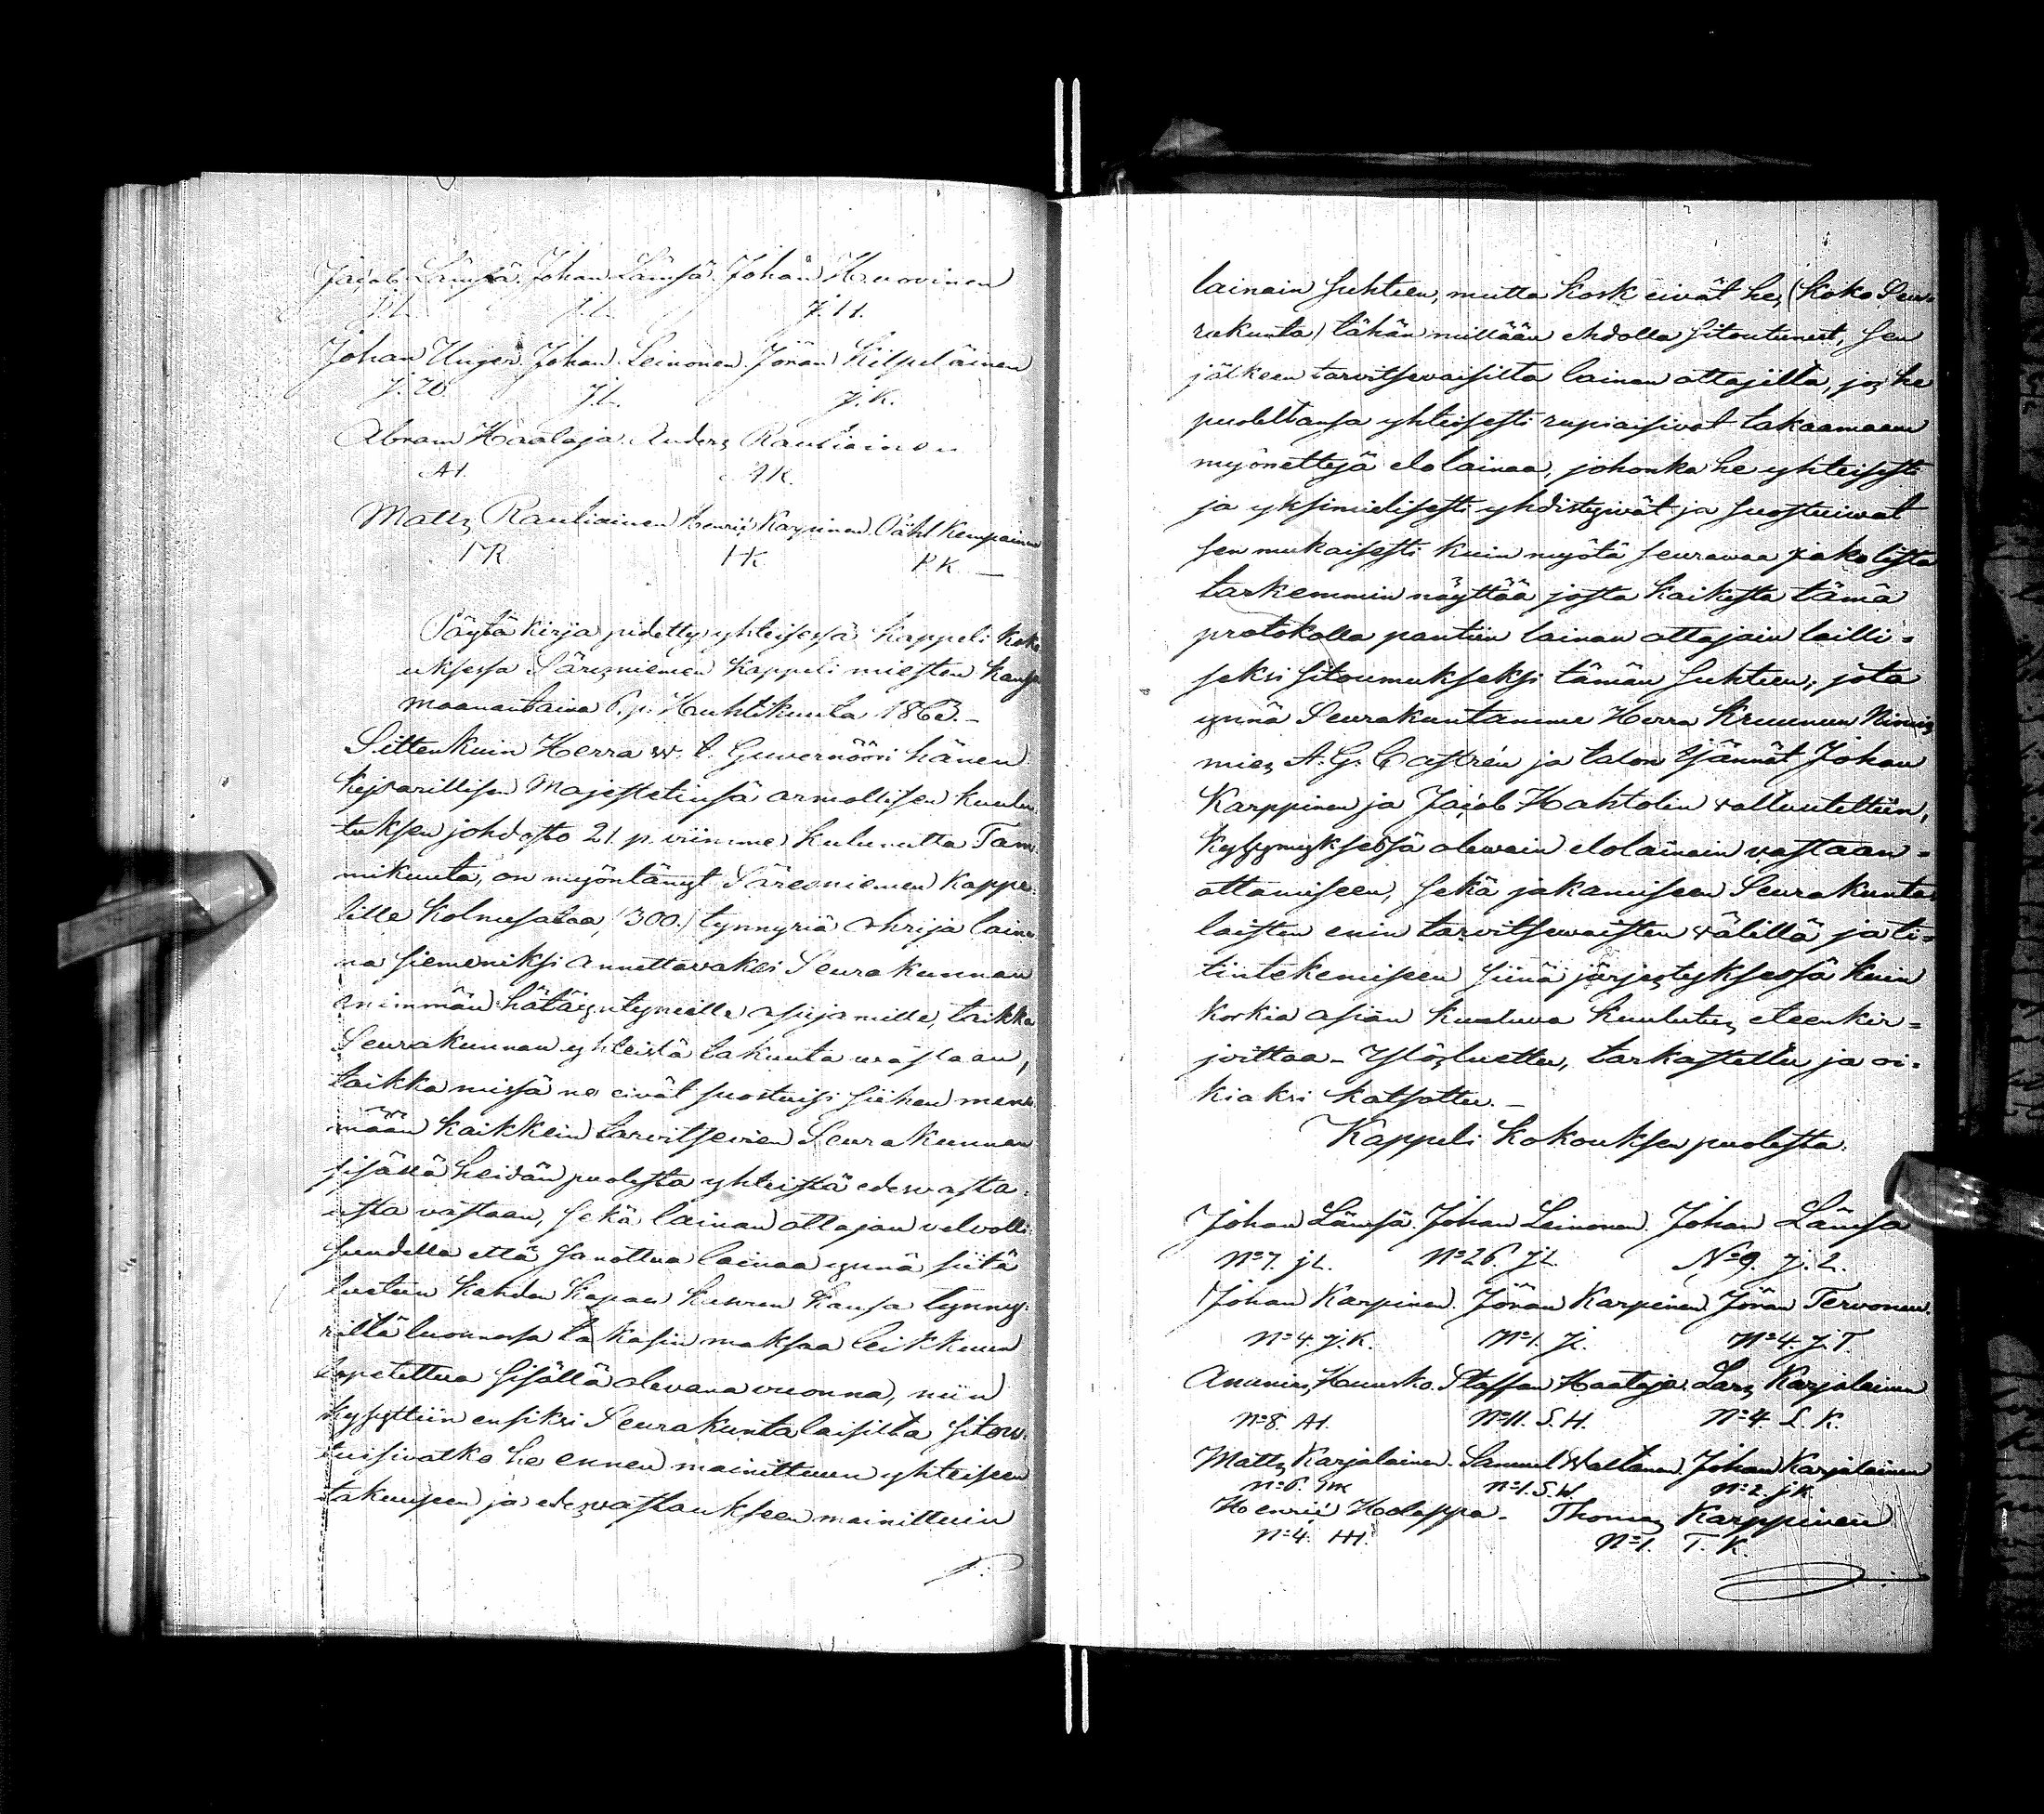 Jacob Lämsä. Johan Lämsä. Johan Huovinen
J. L. J. L. J. H.
Johan Unger. Johan Leinonen. Jöran Kilpeläinen
J. L. J. K.
Abram Haataja. Anders Rautiainen
AH. A R.
Matts Rautiainen Henric Karpinen. Påhl Kempainen
MR HK PK
Pöytäkirja pidetty yhteisessä kappeli koko
uksessa Säresniemen kappeli miesten kanssa
maanantaina 6. p. Huhtikuuta 1863.-
Sittenkuin Herra w. t. Guvernööri hänen
Kejsarillisen Majestetinsä armollisen kuulu-
tuksen johdosto 21. p. viimme kulunutta Tam-
mikuuta, on myöntänyt Säresniemen kappe-
lille kolmesataa, (300.) tynnyriä ohrija laina-
na siemeniksi annettavaksi Seurakunnan
enimmän hätäyntyneille asujamille, taikka
Seurakunnan yhteistä takuuta wastaan,
taikka missä ne eivät suostuisi siihen mene-
mään kaikkein tarvitsevien Seurakunnan
sisässä heidän puolesta yhteistä edeswasta-
usta vastaan, sekä lainan ottajan velvolli-
suudella että sanottua lainaa ynnä siitä
luetun kahden kapan kasvun kansa tynny-
riltä luonnossa takasin maksaa leikkuun
lopetettua sisällä olevana vuonna, niin
kysyttiin ensiksi Seurakuntalaisilta sitou-
tuisivatko he ennen mainittuun yhteiseen
takuuseen ja edesvastaukseen mainittuin
lainain suhteen, mutta kosk eivät he, (koko Seu-
rakunta) tähän millään ehdolla sitoutuneet, sen
jälkeen tarvitsevaisilta lainan ottajilta, jos he
puolestansa yhteisesti rupiaisivat takaamaan
myönettyjä elolainaa, johonka he yhteisesti
ja yksimielisesti yhdistyivät ja suostuiwat
sen mukaisesti kuin myötä seurawaa jakolista
tarkemmin näyttää josta kaikesta tämä
protokolla pantiin lainan ottajain lailli-
seksi sitoumukseksi tämän suhteen; jota
ynnä Seurakuntamme Herra Kruunun Nimis
mies A. G. Castrén ja talon Isännät Johan
Karppinen ja Jacob Hahtolin valtuutettiin,
kysymyksessä olewain elolainain vastaan-
ottamiseen, sekä jakamiseen Seurakunta-
laisten enin tarvitsewaisten välillä ja ti-
lintekemiseen siinä järjestyksessä kuin
korkia asian kuuluva kuulutus eteenkir-
joittaa - Ylösluettu, tarkastettu ja oi-
kiaksi katsottu.-
Kappeli kokouksen puolesta.
Johan Lämsä. Johan Leinonen. Johan Lämsä
No 7. jL. No 26. JL. No 9. J. L.
Johan Karpinen. Jöran Karpinen. Jöran Tervonen.
No 4. J. K. No 1. No 4. J. T.
Ananias Huusko. Staffan Haataja. Lars Karjalainen
No 8. AH. No 11. S. H. No 4. L. K.
Matts Karjalainen. Samuel Waltanen. Johan Karjalainen
No 6. MK No 1. S. W. No 2. jK
Henric Holappa. Thomas Karppinen
No 4. HH. No 1. T. K.